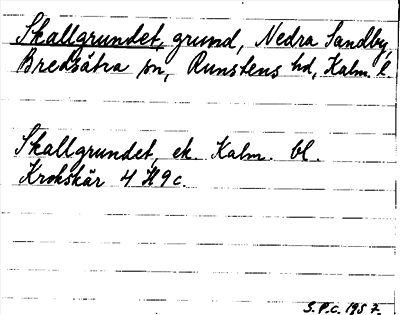 Skallgrundet, grund, Nedra Sandby,
Bredsätra sn, Runstens hd, Kalm. l.
Skallgrundet, ek. Kalm. bl.
Krokskär 4 H 9 c.
S.P.C. 1957.